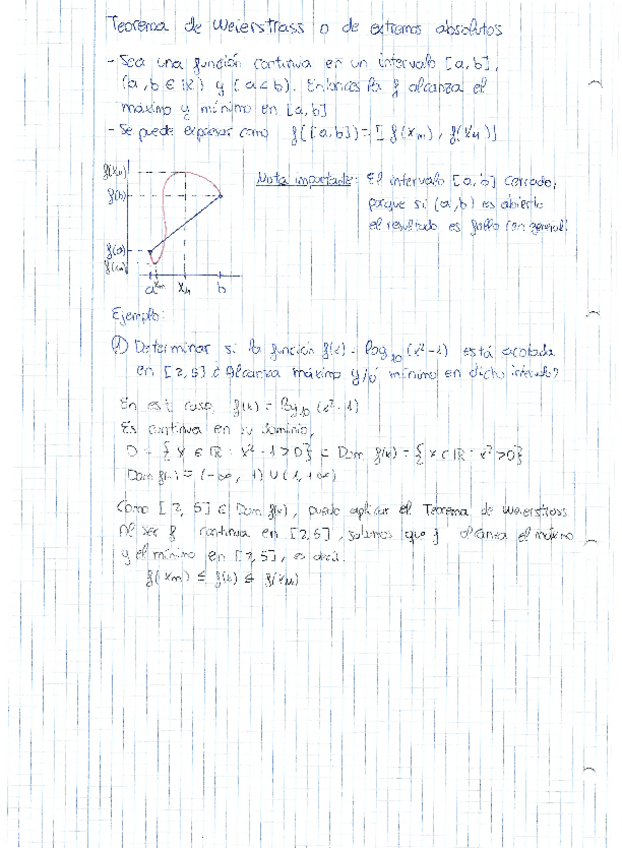 Teorema de Weierstrass o de extremos absolutos
- Sea una función continua en un intervalo [a,b],
(a,b ∈ ℝ) y (a<b). Entonces la f alcanza el
máximo y mínimo en [a,b]
- Se puede expresar como f([a,b]) = [f(xm), f(xM)]
f(xM)
f(b)
f(a)
f(xm)
a xm xM b
Nota importante: El intervalo [a,b] cerrado,
porque si (a,b) es abierto
el resultado es falso (en general).
Ejemplo:
① Determinar si la función f(x) = log₁₀(x²-1) está acotada
en [2,5] ¿Alcanza máximo y/o mínimo en dicho intervalo?
En est caso, f(x) = log₁₀(x²-1)
Es continua en su dominio,
D = {x ∈ ℝ : x²-1>0} = Dom f(x) = {x ∈ ℝ : x²>0}
Dom f(x) = (-∞, 1) ∪ (1, +∞)
Como [2, 5] ∈ Dom f(x), puedo aplicar el Teorema de Weierstrass
Al ser f continua en [2,5], sabemos que f alcanza el máximo
y el mínimo en [2,5], es decir.
f(xm) ≤ f(x) ≤ f(xM)